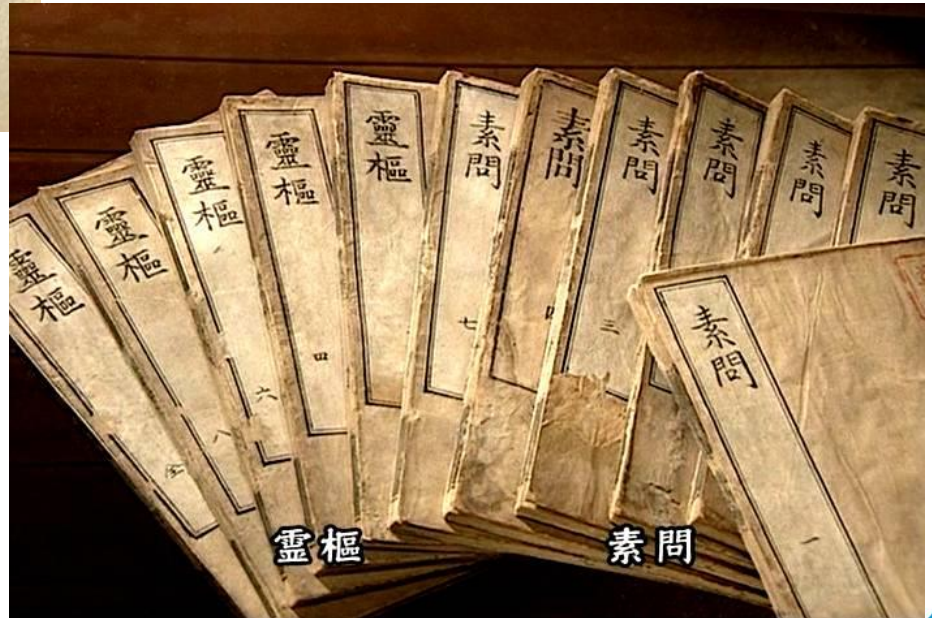 靈樞
全
靈樞
八
靈樞
六
靈樞
四
靈樞
素問
七
素問
四
素問
三
素問
素問
素問
素問
一
霊樞
素問